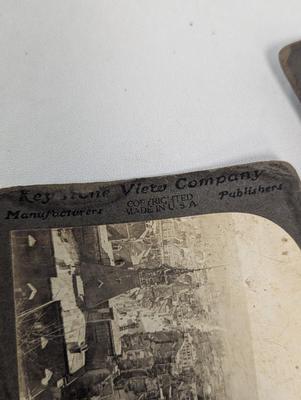 Keystone View Company
Manufacturers COPYRIGHTED Publishers
MADE IN U.S.A.